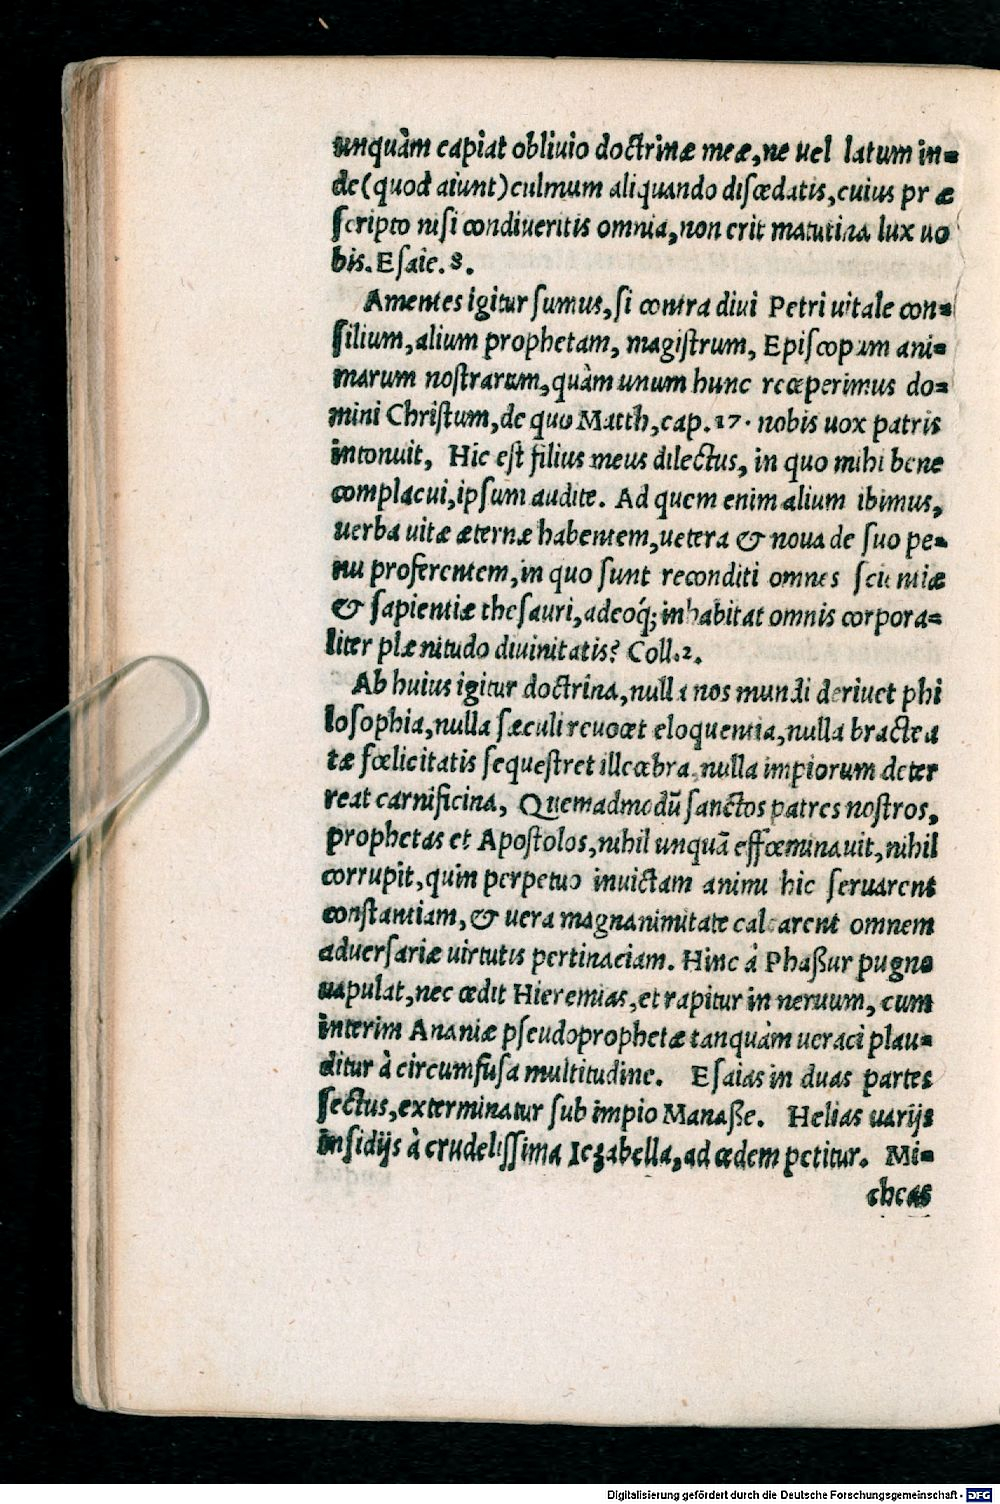 unquàm capiat obliuio doctrinæ meæ, ne uel latum in=
de (quod aiunt) culmum aliquando discedatis, cuius præ
scripto nisi condiueritis omnia, non erit matutina lux uo
bis. Esaie. 8.
Amentes igitur sumus, si contra diui Petri uitale con=
silium, alium prophetam, magistrum, Episcopum ani=
marum nostrarum, quàm unum hunc receperimus do=
mini Christum, de quo Matth, cap. 17. nobis uox patris
intonuit, Hic est filius meus dilectus, in quo mihi bene
complacui, ipsum audite. Ad quem enim alium ibimus,
uerba uitæ æternæ habentem, uetera & noua de suo pe=
nu proferentem, in quo sunt reconditi omnes scientiæ
& sapientiæ thesauri, adeoq́; inhabitat omnis corpora=
liter plænitudo diuinitatis? Coll. 2.
Ab huius igitur doctrina, nulla nos mundi deriuet phi
losophia, nulla sæculi reuocet eloquentia, nulla bractea
tæ fœlicitatis sequestret illecebra, nulla impiorum deter
reat carnificina, Quemadmodū sanctos patres nostros,
prophetas et Apostolos, nihil unquā effœminauit, nihil
corrupit, quin perpetuo inuictam animi hic seruarent
constantiam, & uera magnanimitate calcarent omnem
aduersariæ uirtutis pertinaciam. Hinc à Phaßur pugno
uapulat, nec cedit Hieremias, et rapitur in neruum, cum
interim Ananiæ pseudoprophetæ tanquàm ueraci plau=
ditur à circumfusa multitudine. Esaias in duas partes
sectus, exterminatur sub impio Manaße. Helias uarijs
insidijs à crudelissima Iezabella, ad cedem petitur. Mi=
cheas
Digitalisierung gefördert durch die Deutsche Forschungsgemeinschaft - DFG